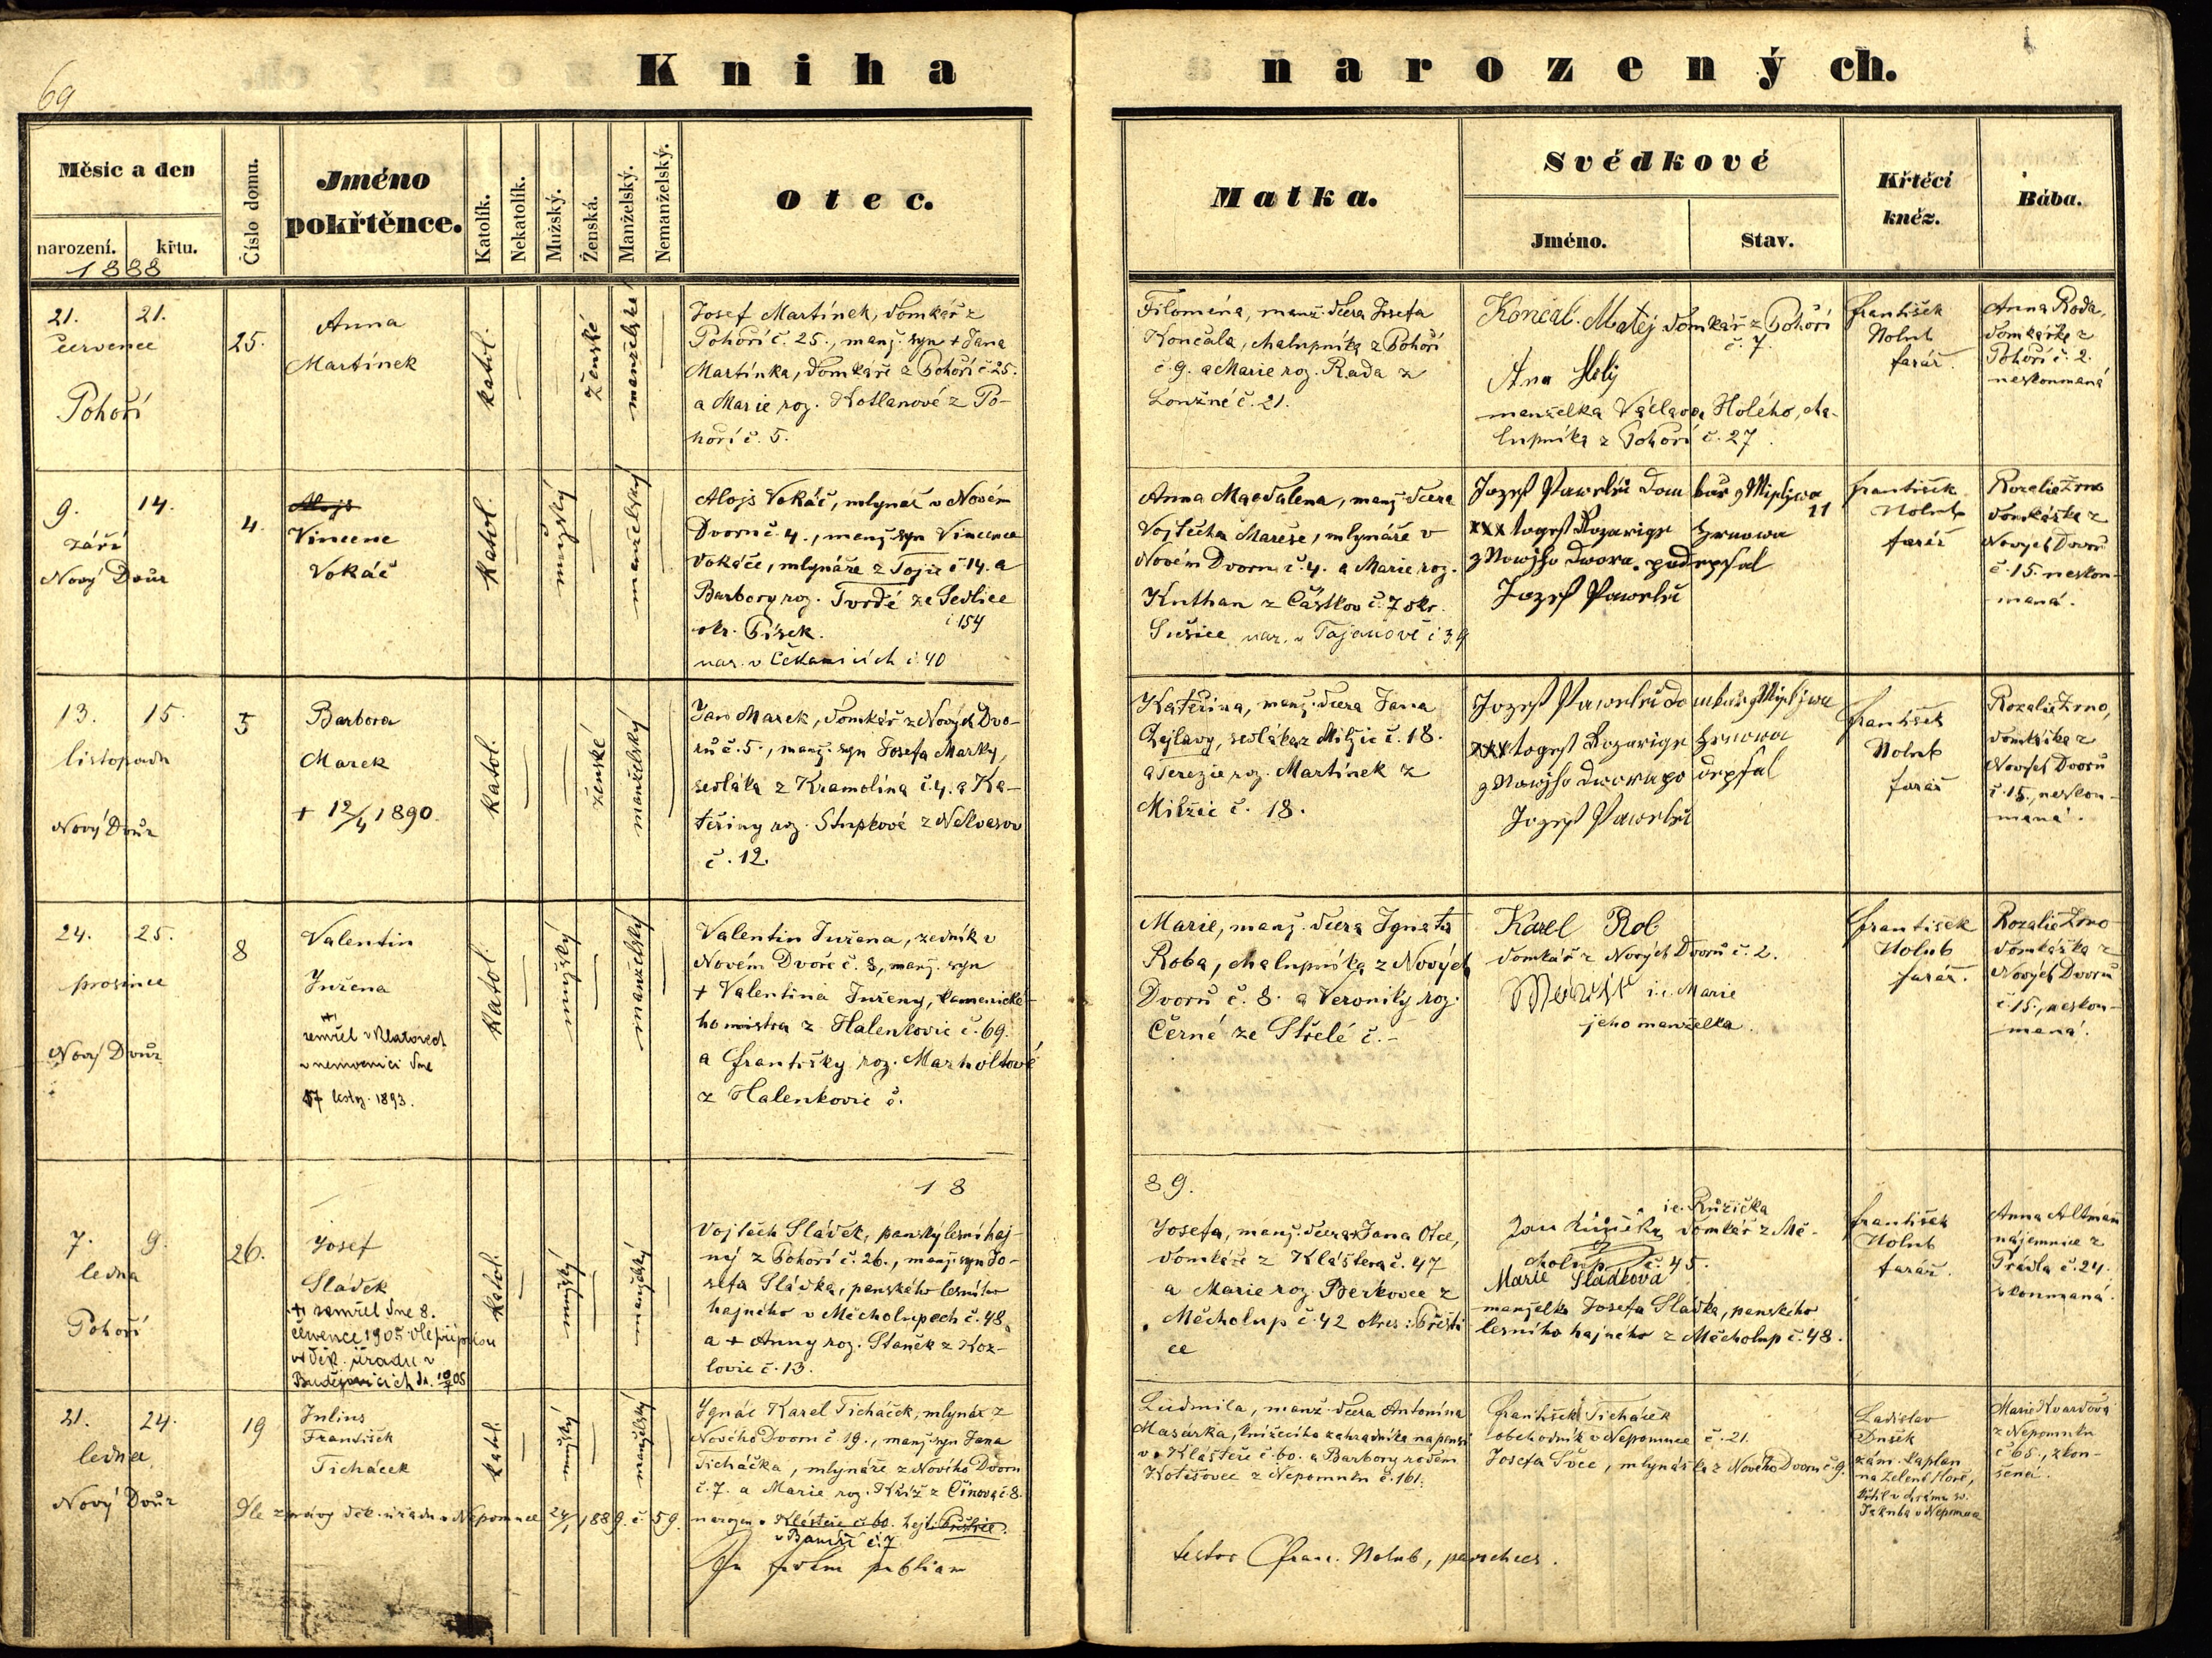 69
Kniha
narozených.
Měsíc a den
narození.
křtu.
1888
Číslo domu.
Jméno
pokřtěnce.
Katolík.
Nekatolík.
Mužský.
Ženská.
Manželský.
Nemanželský.
Otec.
Matka.
Svědkové
Jméno.
Stav.
Křtěcí
kněz.
Bába.
21. 21.
července
Pohoří
25.
Anna
Martínek
katol.
ženské
manželské
Josef Martínek, domkář z
Pohoří č. 25., manž. syn + Jana
Martínka, domkáře z Pohoří č. 25.
a Marie roz. Kotlanové z Po-
hoří č. 5.
Filoména, manž. dcera Josefa
Končala, chalupníka z Pohoří
č. 9. a Marie roz. Rada z
č. 21.
Končal Matěj domkář z Pohoří
č. 7.
Ana Holý
manželka Václava Holého, cha-
lupníka z Pohoří č. 27.
František
Holub
farář.
Anna Rada,
domkářka z
Pohoří č. 2.
neskoumaná
9. 14.
září
Nový Dvůr
4.
Alojs
Vincenc
Vokáč
katol.
mužský
manželský
Alojs Vokáč, mlynář v Novém
Dvoru č. 4., manž. syn Vincence
Vokáče, mlynáře z Tojic č. 14. a
Barbory roz. Tvrdé ze Sedlice
č 154
okr. Písek.
nar. v Čekanicích č. 40
Anna Magdalena, manž. dcera
Vojtěcha Mareše, mlynáře v
Novém Dvoru č. 4. a Marie roz.
Kuthan z Částkov č. 7 okr.
Sušice nar. v Tajanově č 34
Jozef Pawelec
11
xxx
Jozef Pawelec
František
Holub
farář
Rozalie Zrno
domkářka z
Nových Dvorů
č. 15. neskou-
maná.
13. 15.
listopadu
Nový Dvůr
5
Barbora
Marek
+ 12/4 1890.
katol.
ženské
manželský
Jan Marek, domkář z Nových Dvo-
rů č. 5., manž. syn Josefa Marky,
sedláka z Kramolína č. 4. a Ka-
teřiny roz. Stupkové z Nekvasov
č. 12.
Kateřina, manž. dcera Jana
Čejlavy, sedláka z Milčic č. 18.
a Terezie roz. Martínek z
Milčic č. 18.
Jozef Pawelec
xxx
Jozef Pawelec
František
Holub
farář
Rozalie Zrno,
domkářka z
Nových Dvorů
č. 15., neskou-
maná.
24. 25.
prosince
Nový Dvůr
8
Valentin
Juřena
zemřel v Klatovech
v nemocnici dne
17 listop. 1893.
katol.
mužský
manželský
Valentin Juřena, zedník v
Novém Dvoře č. 8, manž. syn
+ Valentina Juřeny, kamenické-
ho mistra z Halenkovic č. 69.
a Františky roz. Marholtové
z Halenkovic č.
Marie, manž. dcera Ignáta
Roba, chalupníka z Nových
Dvorů č. 8. a Veroniky roz.
Černé ze Střelé č. -
Karel Rob
domkář z Nových Dvorů č. 2.
i.e. Marie
jeho manželka.
František
Holub
farář.
Rozalie Zrno
domkářka z
Nových Dvorů
č. 15., neskou-
maná.
18
89.
7. 9.
ledna
Pohoří
26.
Josef
Sládek
+ zemřel dne 8.
července 1905 dle přípisu
děk. úřadu v
Budějovicích
katol.
mužský
manželský
Vojtěch Sládek, panský lesní haj-
ný z Pohoří č. 26., manž. syn Jo-
sefa Sládka, panského lesního
hajného v Měcholupech č. 48.
a + Anny roz. Staněk z Koz-
lovic č. 13.
Josefa, manž. dcera + Jana Otce,
domkáře z Kláštera č. 47
a Marie roz. Berkovec z
Měcholup č. 42 okres: Přešti
ce
i.e. Růžička
Jan Růžička domkář z Mě-
cholup č. 45.
Marie Sládková
manželka Josefa Sládka, panského
lesního hajného z Měcholup č. 48.
František
Holub
farář.
Anna Altman
nájemnice z
Prádla č. 24.
zkoumaná.
21. 24.
ledna
Nový Dvůr
19
Julius
František
Ticháček
katol.
mužský
manželský
Ignác Karel Ticháček, mlynář z
Nového Dvoru č. 19., manž. syn Jana
Ticháčka, mlynáře z Nového Dvoru
č. 7. a Marie roz. Kříž z Činova č. 8.
narozen v Klášteře č. 60. hejt. Přeštice.
č. 7
Dle zprávy děk. úřadu v Nepomuce 24/1 1889. č. 59.
Ludmila, manž. dcera Antonína
Masárka, knížecího zahradníka na pensi
v Klášteře č. 60. a Barbory rozem
Kotěšovec z Nepomuku č. 161.
František Ticháček
obchodník v Nepomuce č. 21.
Josefa Švec, mlynářka z Nového Dvoru č. 9.
Ladislav
Dušek
zám. kaplan
na Zelené Hoře,
křtil v chrámu sv.
Jakuba v Nepomuce
Marie Kvardová
z Nepomuku
č. 65., zkou-
šená.
In fidem publicam
testor Franc. Holub, parochus.